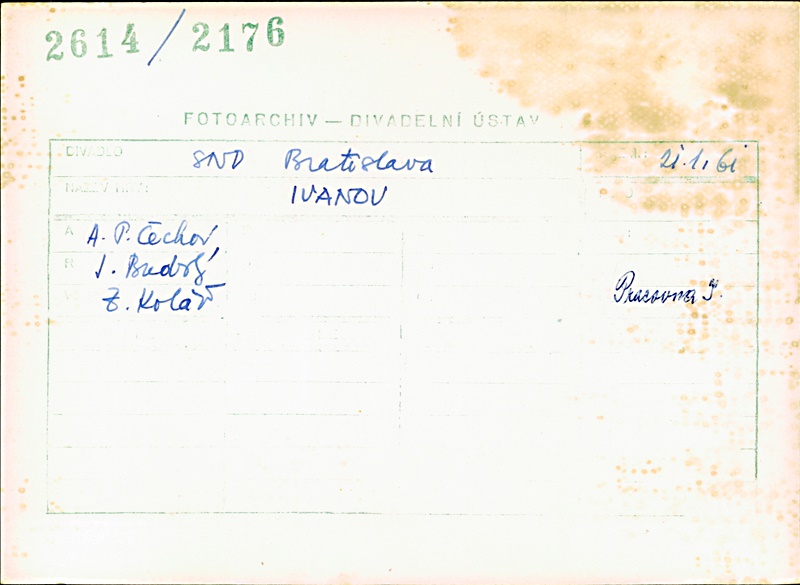 2614/2176
FOTOARCHIV — DIVADELNÍ ÚSTAV
DIVADLO SND Bratislava 21.1.61
NÁZEV HRY: IVANOV
A A. P. Čechov,
R J. Budský
V Z. Kolář
Pracovna I.